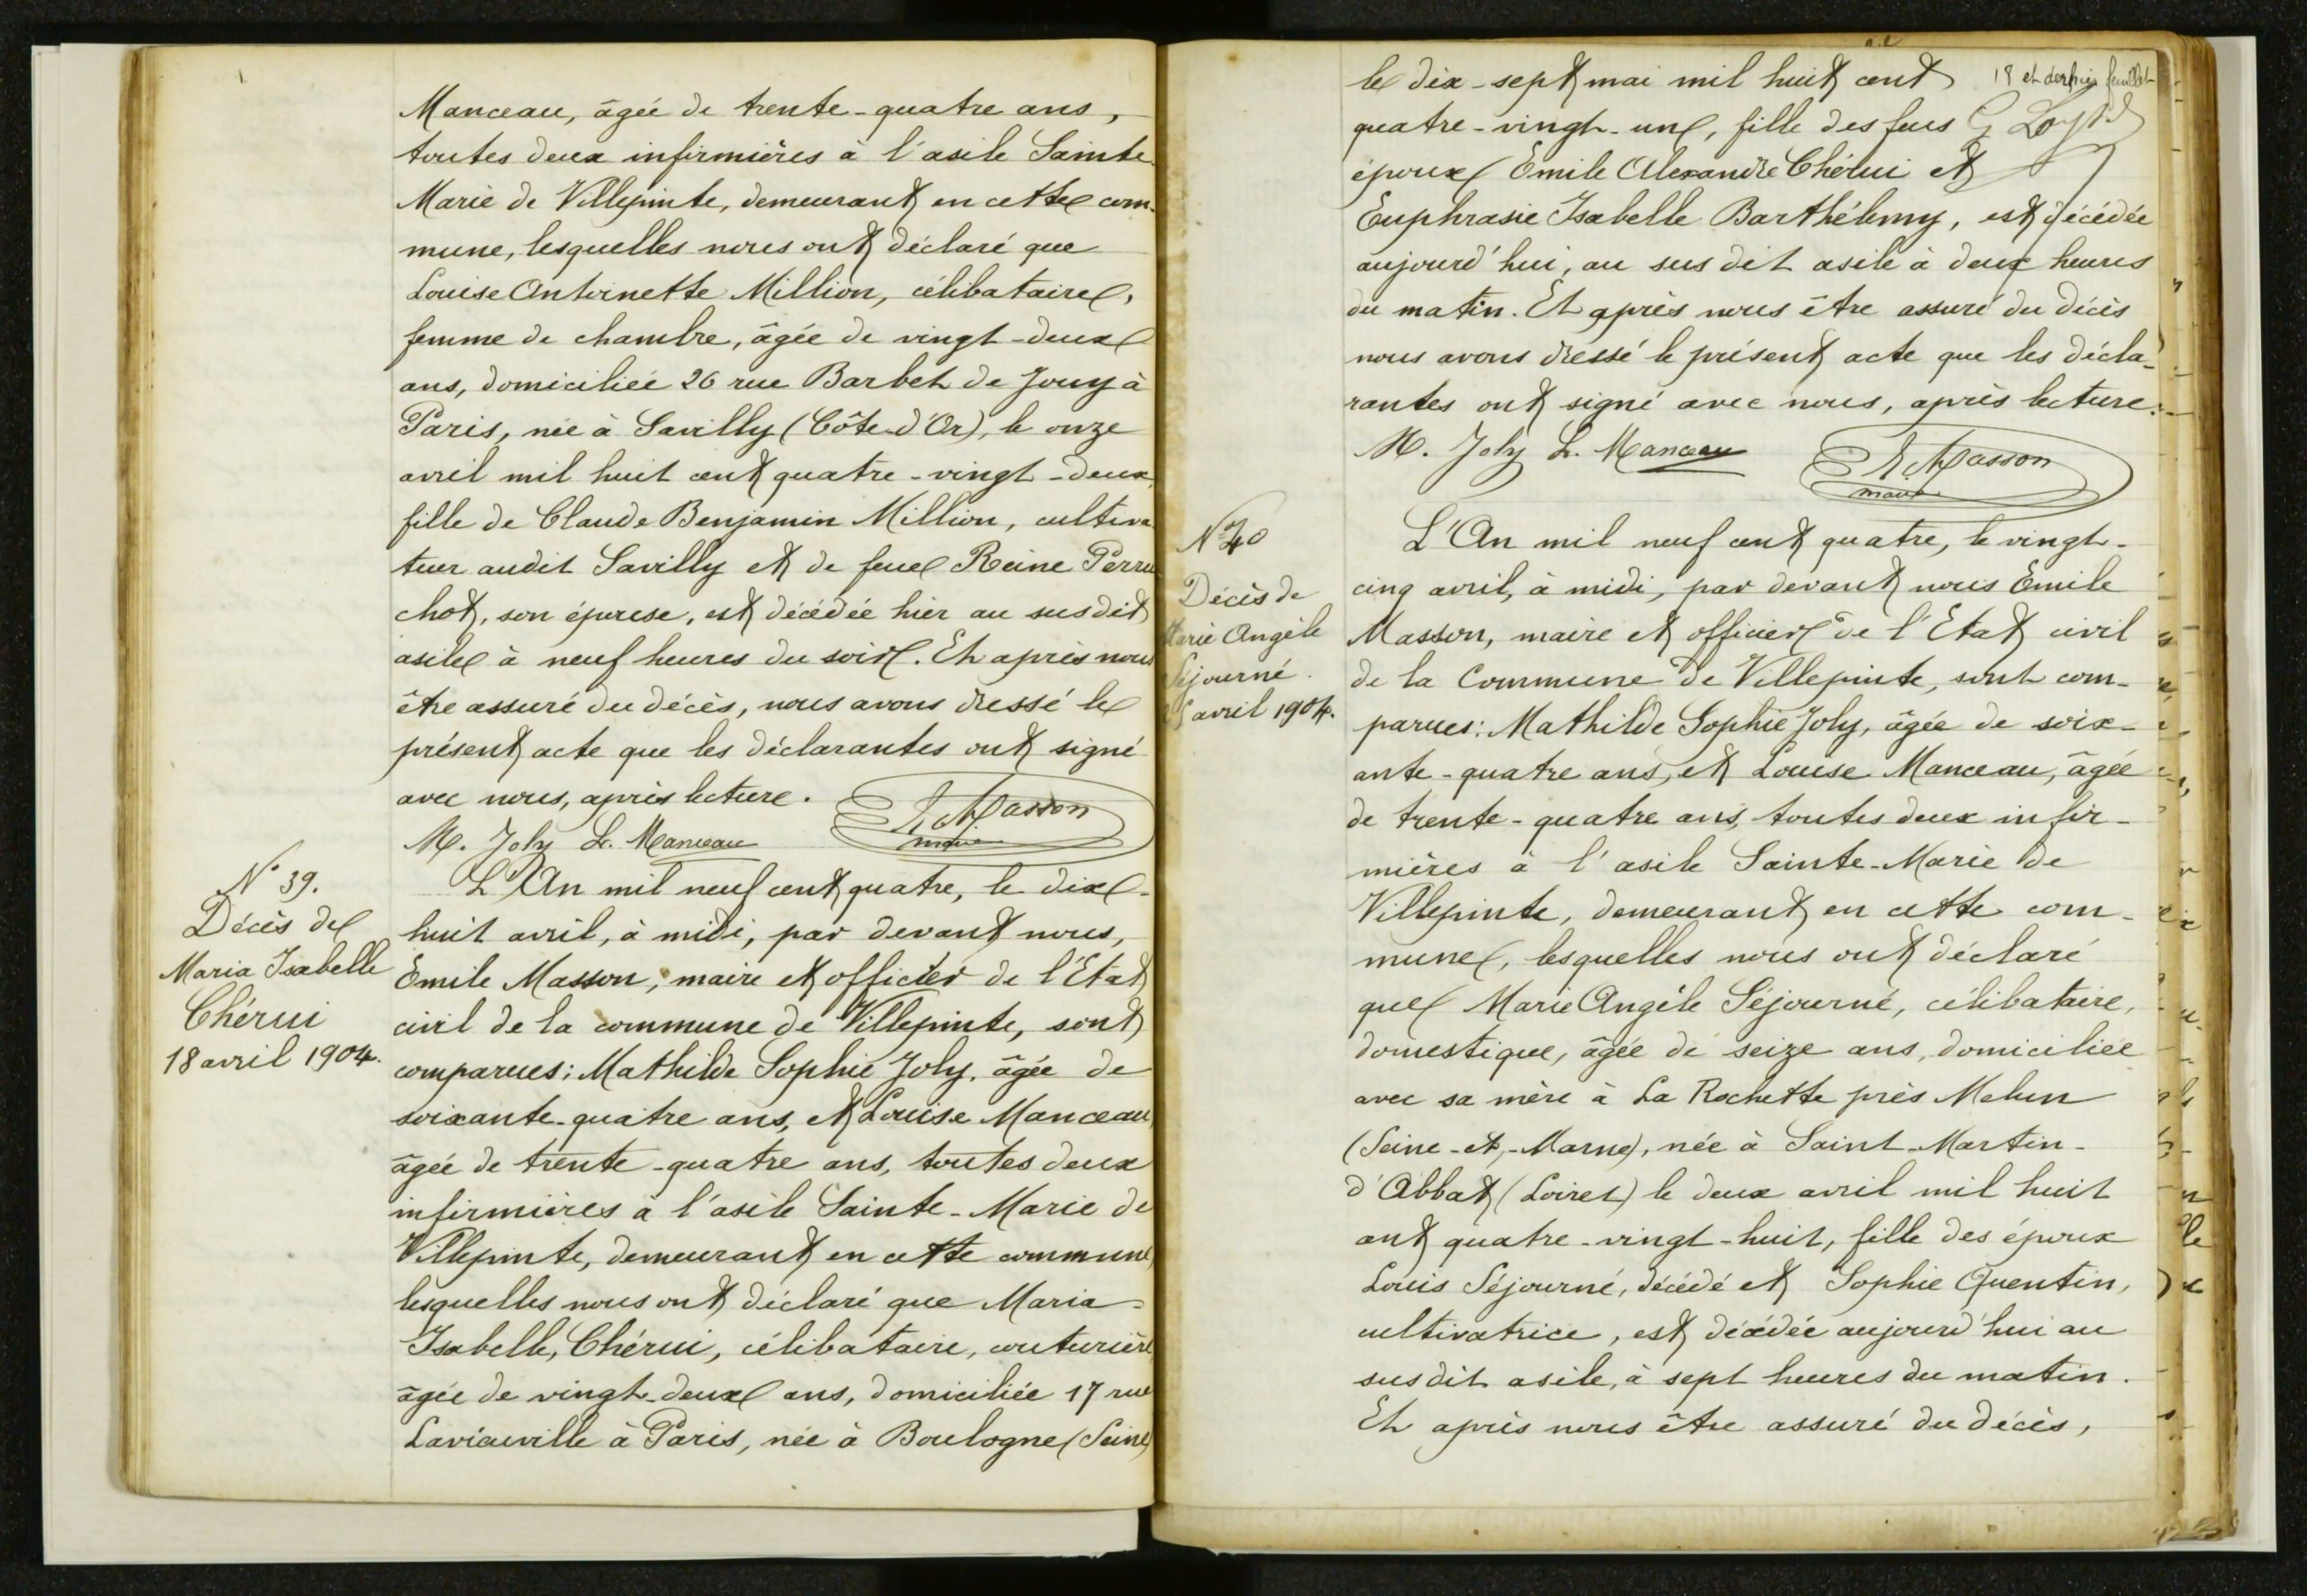 Manceau, âgée de trente-quatre ans,
toutes deux infirmières à l'asile Sainte
Marie de Villepinte, demeurant en cette com-
mune, lesquelles nous ont déclaré que
Louise Antoinette Million, célibataire,
femme de chambre, âgée de vingt-deux
ans, domiciliée 26 rue Barbet de Jouy à
Paris, née à Savilly (Côte-d'Or), le onze
avril mil huit cent quatre-vingt-deux,
fille de Claude Benjamin Million, cultiva
teur audit Savilly et de feue Reine Perru
chot, son épouse, est décédée hier au susdit
asile à neuf heures du soir. Et après nous
être assuré du décès, nous avons dressé le
présent acte que les déclarantes ont signé
avec nous, après lecture.
M. Joly L. Manceau E. Masson
maire
N° 39.
Décès de
Maria Isabelle
Chérui
18 avril 1904.
L'An mil neuf cent quatre, le dix-
huit avril, à midi, par devant nous,
Emile Masson, maire et officier de l'Etat
civil de la commune de Villepinte, sont
comparues: Mathilde Sophie Joly, âgée de
soixante-quatre ans, et Louise Manceau,
âgée de trente-quatre ans, toutes deux
infirmières à l'asile Sainte-Marie de
Villepinte, demeurant en cette commune,
lesquelles nous ont déclaré que Maria-
Isabelle, Chérui, célibataire, couturière
âgée de vingt-deux ans, domiciliée 17 rue
Lavieuville à Paris, née à Boulogne (Seine)
18 et dernier feuillet
le dix-sept mai mil huit cent
quatre-vingt-un, fille des feus
époux Emile Alexandre Chérui et
Euphrasie Isabelle Barthélemy, est décédée
aujourd'hui, au sus dit asile à deux heures
du matin. Et après nous être assuré du décès
nous avons dressé le présent acte que les décla-
rantes ont signé avec nous, après lecture.
M. Joly L. Manceau E. Masson
maire
N° 40
Décès de
Marie Angèle
Séjourné.
25 avril 1904.
L'An mil neuf cent quatre, le vingt-
cinq avril, à midi, par devant nous Emile
Masson, maire et officier de l'Etat civil
de la Commune de Villepinte, sont com-
parues: Mathilde Sophie Joly, âgée de soix-
ante-quatre ans, et Louise Manceau, âgée
de trente-quatre ans, toutes deux infir-
mières à l'asile Sainte-Marie de
Villepinte, demeurant en cette com-
mune, lesquelles nous ont déclaré
que Marie Angèle Séjourné, célibataire,
domestique, âgée de seize ans, domiciliée
avec sa mère à La Rochette près Melun
(Seine-et-Marne), née à Saint-Martin-
d'Abbat (Loiret) le deux avril mil huit
cent quatre-vingt-huit, fille des époux
Louis Séjourné, décédé et Sophie Quentin,
cultivatrice, est décédée aujourd'hui au
susdit asile, à sept heures du matin.
Et après nous être assuré du décès,